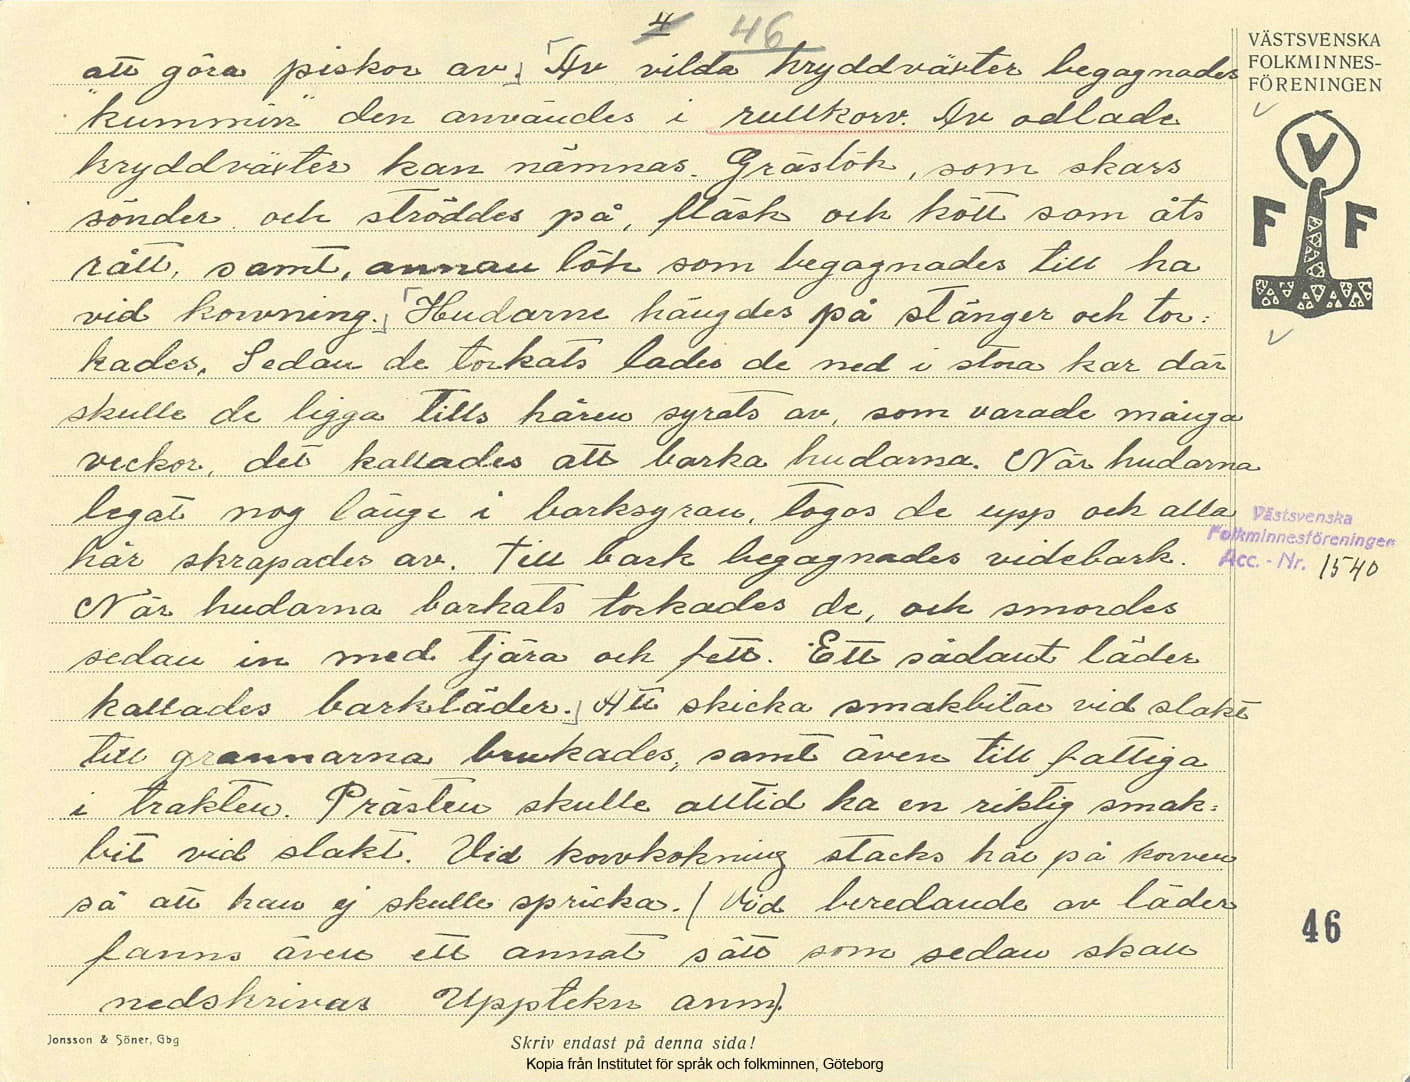 4 46
att göra piskor av. Av vilda kryddväxter begagnades
"kummin" den användes i rullkorv. Av odlade
kryddväxter kan nämnas. Gräslök, som skars
sönder och ströddes på, fläsk och kött som åts
rått, samt, annan lök som begagnades till ha
vid korvning. Hudarne hängdes på stänger och tor:
kades. Sedan de torkats lades de ned i stora kar där
skulle de ligga tills håren syrats av, som varade många
veckor, det kallades att barka hudarna. När hudarna
legat nog länge i barksyran, togos de upp och alla
hår skrapades av. Till bark begagnades videbark.
När hudarna barkats torkades de, och smordes
sedan in med tjära och fett. Ett sådant läder
kallades barkläder. Att skicka smakbitar vid slakt
till grannarna brukades, samt även till fattiga
i trakten. Prästen skulle alltid ha en riktig smak:
bit vid slakt. Vid korvkokning stacks hål på korven
så att han ej skulle spricka. (Vid beredande av läder
fanns även ett annat sätt som sedan skall
nedskrivas Upptekn anm).
VÄSTSVENSKA
FOLKMINNES-
FÖRENINGEN
V
F F
Västsvenska
Folkminnesföreningen
Acc. - Nr. 1540
46
Jonsson & Söner, Gbg
Skriv endast på denna sida!
Kopia från Institutet för språk och folkminnen, Göteborg